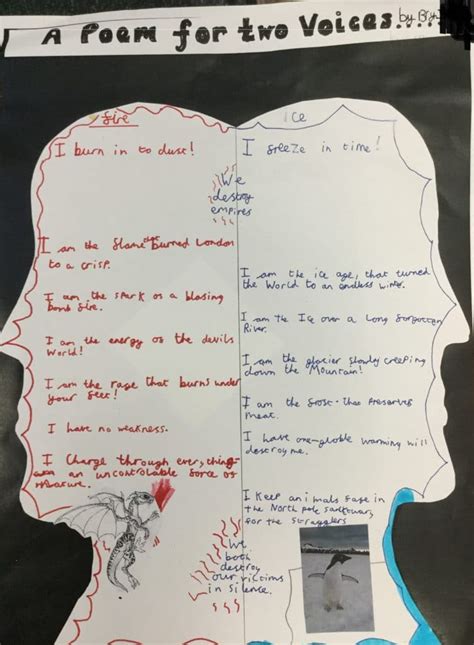 A Poem for two Voices....
by
fire
ICE
I burn in to dust!
I freeze in time!
We
destroy
empires
I am the flame that burned London
to a crisp.
I am the ice age, that turned
the World to an endless winter.
I am the spark of a blasing
bomb fire.
I am the Ice over a long forgotten
River.
I am the energy of the devils
World!
I am the glacier slowly creeping
down the Mountain!
I am the rage that burns under
your feet!
I am the frost that preserves
meat.
I have no weakness.
I have one-globle warming will
destroy me.
I Charge through everything
an uncontrolable force of
Nature.
I Keep animals safe in
the North pole
for the
We
both
destroy
our victims
in silence.